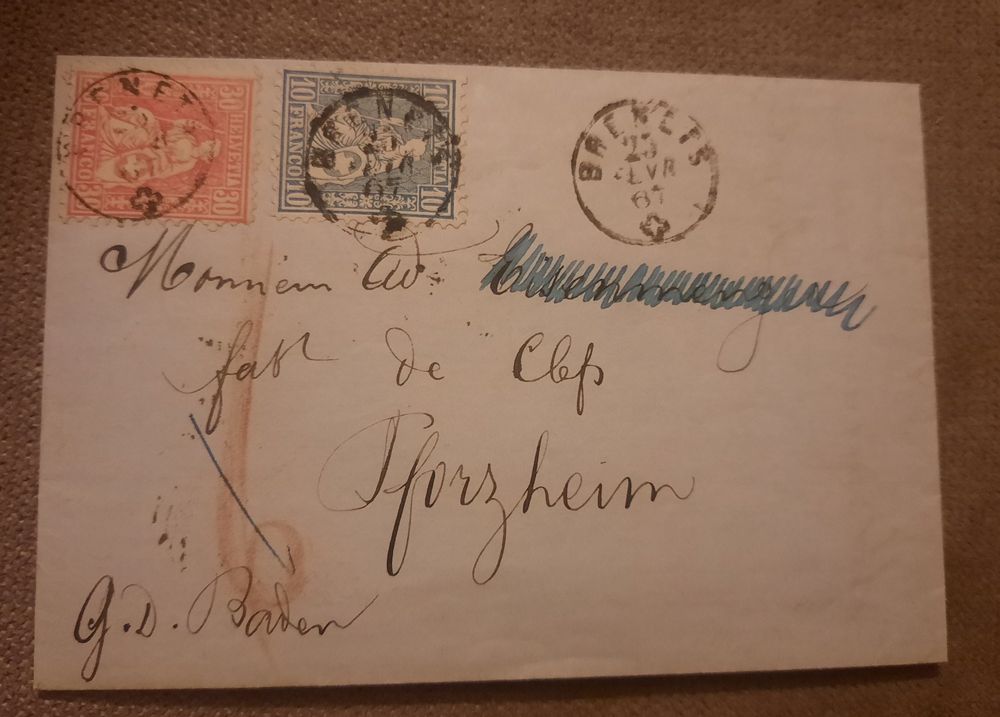 30 HELVETIA 30
FRANCO
10 HELVETIA 10
FRANCO
BRENETS
BRENETS
BRENETS
23
FEVR
67
Monsieur Av
fabt de Clefs
Pforzheim
G. D. Baden